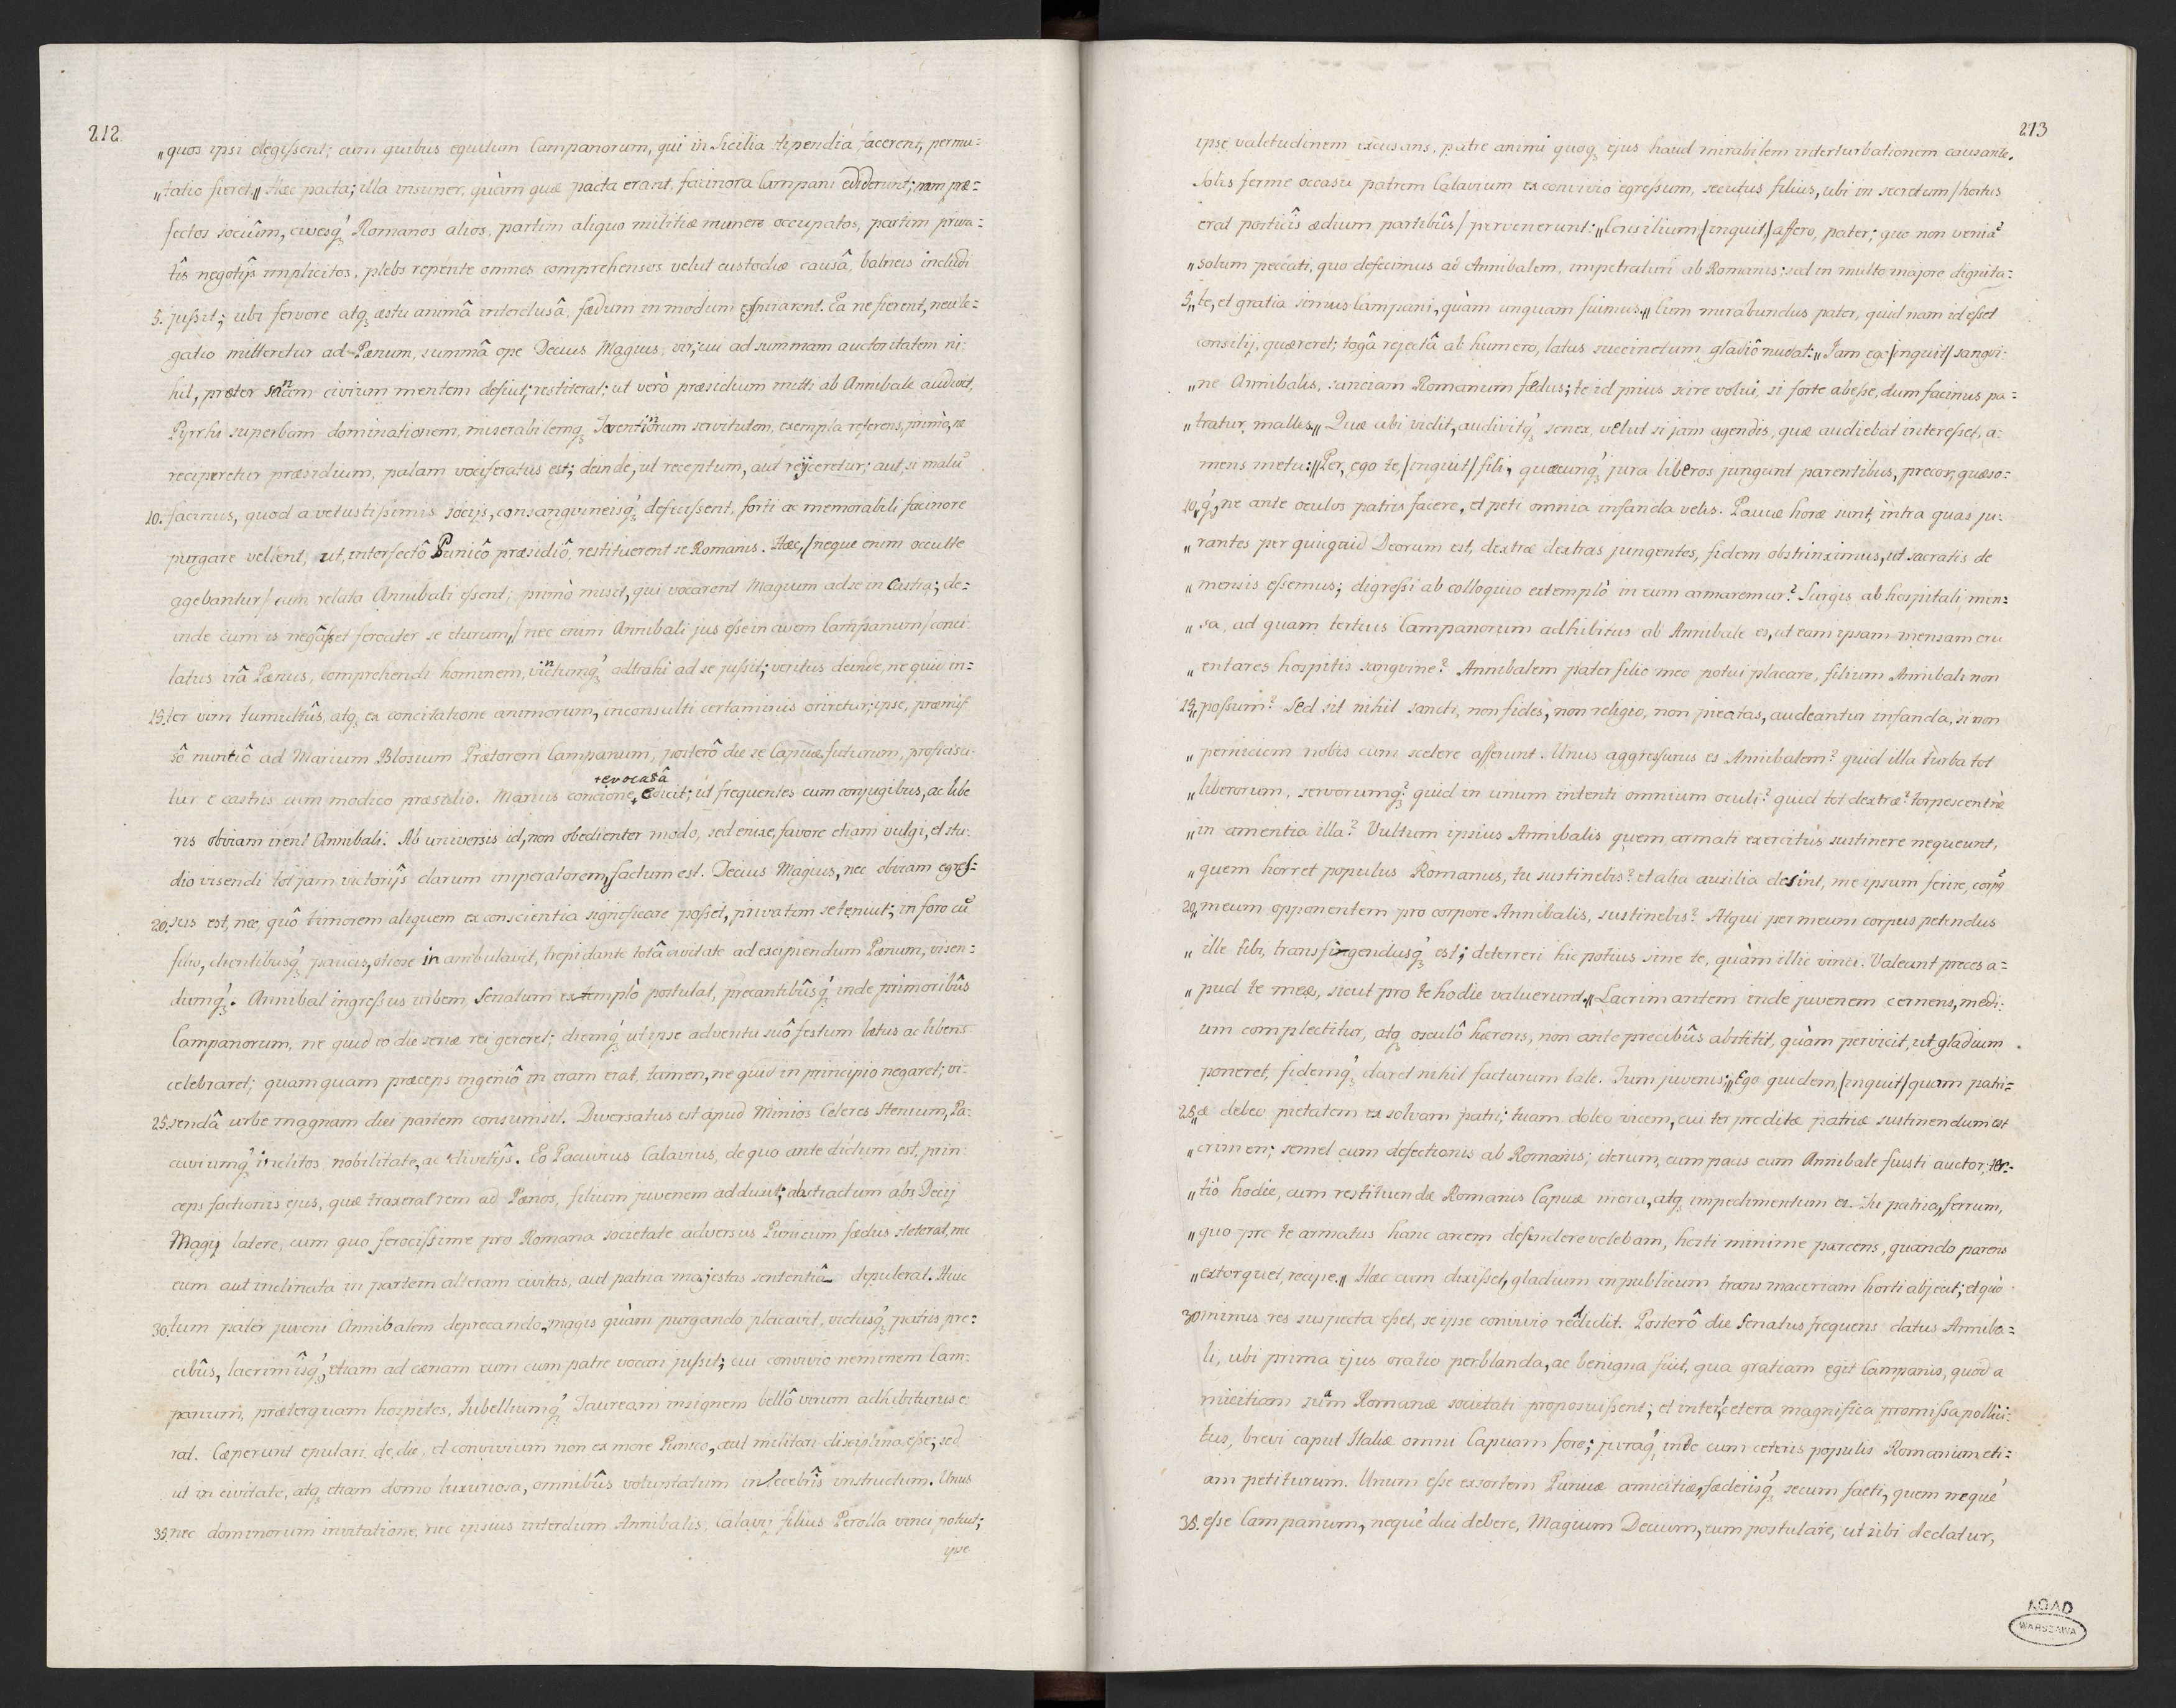 212
„quos ipsi elegissent; cum quibus equitum Campanorum, qui in Sicilia stipendia facerent, permu=
„tatio fieret„ Hæc pacta; illa insuper, quàm quæ pacta erant, facinora Campani ediderunt; nam præ=
fectos sociûm, civesq́ꝫ Romanos alios, partim aliquo militiæ munere occupatos, partim priva=
tîs negotijs implicitos, plebs repente omnes comprehensos velut custodiæ causâ, balneis includi
5. jussit; ubi fervore atqꝫ æstu animâ interclusâ, fœdum in modum exspirarent. Ea ne fierent, neu le=
gatio mitteretur ad Pœnum, summâ ope Decius Magius, vir, cui ad summam auctoritatem ni=
hil, præter sanam civium mentem defuit; restiterat; ut verò præsidium mitti ab Annibale audivit,
Pyrrhi superbam dominationem, miserabilemqꝫ Tarentinorum servitutem, exempla referens, primò, ne
reciperetur præsidium, palam vociferatus est; deinde, ut receptum, aut rejiceretur; aut, si malũ
10. facinus, quod a vetustissimis socijs, consanguineisq́ꝫ defecissent, forti ac memorabili facinore
purgare vellent, ut, interfectô Punicô præsidiô, restituerent se Romanis. Hæc, /neque enim occulte
agebantur/ cum relata Annibali essent; primò misit, qui vocarent Magium ad se in Castra; de=
inde cum is negâsset ferociter se iturum, /nec enim Annibali jus esse in civem Campanum/ conci=
tatus irâ Pœnus, comprehendi hominem, vinctumq́ꝫ adtrahi ad se jussit; veritus deinde, ne quid in=
15. ter vim tumultûs, atqꝫ ex concitatione animorum, inconsulti certaminis oriretur; ipse, præmis
sô nuntiô ad Marium Blosium Prætorem Campanum, posterô die se Capuæ futurum, proficisci=
tur e castris cum modico præsidio. Marius concione,
+evocatâ
+ edicit; ut frequentes cum conjugibus, ac libe
ris obviam irent Annibali. Ab universis id, non obedienter modo, sed enixe, favore etiam vulgi, et stu=
dio visendi tot jam victorijs clarum imperatorem, factum est. Decius Magius, nec obviam egres=
20. sus est, nec, quô timorem aliquem ex conscientia significare posset, privatim se tenuit; in foro cũ
filio, clientibusq́ꝫ paucis, otiose inambulavit, trepidante totâ civitate ad excipiendum Pœnum, visen=
dumq́ꝫ. Annibal ingressus urbem, Senatum extemplò postulat, precantibûsq́ꝫ inde primoribûs
Campanorum, ne quid eo die seriæ rei gereret; diemq́ꝫ ut ipse adventu suô festum lætus ac libens
celebraret; quamquam præceps ingeniô in iram erat, tamen, ne quid in principio negaret; vi=
25. sendâ urbe magnam diei partem consumsit. Diversatus est apud Minios Celeres Stenium, Pa=
cuviumq́ꝫ inclitos nobilitate, ac divitijs. Eo Pacuvius Calavius, de quo ante dictum est, prin
ceps factionis ejus, quæ traxerat rem ad Pœnos, filium juvenem adduxit; abstractum abs Decij
Magij latere, cum quo ferocissime pro Romana societate adversus Punicum fœdus steterat, nec
eum aut inclinata in partem alteram civitas, aut patria majestas sententiâ depulerat. Hunc
30. tum pater juveni Annibalem deprecando, magis quàm purgando placavit, victusq́ꝫ patris pre=
cibûs, lacrimîsq́ꝫ, etiam ad cœnam eum cum patre vocari jussit; cui convivio neminem Cam=
panum, præterquam hospites, Jubelliumq́ꝫ Tauream insignem bellô virum adhibiturus e=
rat. Cœperunt epulari de die, et convivium non ex more Punico, aut militari disciplina esse; sed
ut in civitate, atqꝫ etiam domo luxuriosa, omnibûs voluptatum inlecebrîs instructum. Unus
35. nec dominorum invitatione, nec ipsius interdum Annibalis, Calavij filius Perolla vinci potuit;
ipse
213
ipse valetudinem excusans, patre animi quoqꝫ ejus haud mirabilem interturbationem causante.
Solis ferme occasu patrem Calavium ex convivio egressum, secutus filius, ubi in secretum /hortus
erat posticîs ædium partibûs/ pervenerunt: „Consilium, /inquit,/ affero, pater; quo non veniã
„solum peccati, quo defecimus ad Annibalem, impetraturi ab Romanis; sed in multo majore dignita=
5. „te, et gratia simus Campani, quàm unquam fuimus.„ Cum mirabundus pater, quid nam id esset
consilij, quæreret; togâ rejectâ ab humero, latus succinctum gladiô nudat: „Jam ego /inquit/ sangvi=
„ne Annibalis, sanciam Romanum fœdus; te id prius scire volui, si forte abesse, dum facinus pa=
„tratur, malles.„ Quæ ubi vidit, audivitq́ꝫ senex, velut si jam agendis, quæ audiebat interesset, a=
mens metu: „Per, ego te, /inquit/ fili, quæcunq́ꝫ jura liberos jungunt parentibus, precor, quæso=
10. „q́ꝫ, ne ante oculos patris facere, et pati omnia infanda velis. Paucæ horæ sunt, intra quas ju=
„rantes per quiquid Deorum est, dextræ dextras jungentes, fidem obstrinximus, ut sacratis de
„mensis essemus; digressi ab colloquio extemplò in eum armaremur? Surgis ab hospitali men=
„sa, ad quam tertius Campanorum adhibitus ab Annibale es, ut eam ipsam mensam cru
„entares hospitis sangvine? Annibalem pater filio meo potui placare, filium Annibali non
15. „possum? Sed sit nihil sancti, non fides, non religio, non pietas, audeantur infanda, si non
„perniciem nobis cum scelere afferunt. Unus aggressurus es Annibalem? quid illa turba tot
„liberorum, servorumqꝫ? quid in unum intenti omnium oculi? quid tot dextræ? torpescentnè
„in amentia illa? Vultum ipsius Annibalis, quem armati exercitus sustinere nequeunt,
„quem horret populus Romanus, tu sustinebis? et alia auxilia desint, me ipsum ferire, corpq
20. „meum opponentem pro corpore Annibalis, sustinebis? Atqui per meum corpus petendus
„ille tibi, transfigendusq́ꝫ est; deterreri hic potius sine te, quàm illic vinci. Valeant preces a=
„pud te meæ, sicut pro te hodie valuerunt.„ Lacrimantem inde juvenem cernens, medi=
um complectitur, atqꝫ osculô hærens, non ante precibûs abstitit, quàm pervicit, ut gladium
poneret, fidemq́ꝫ daret nihil facturum tale. Tum juvenis; „Ego quidem, /inquit/ quam patri=
25. „æ debeo pietatem exsolvam patri; tuam doleo vicem, cui ter proditæ patriæ sustinendum est
„crimen; semel cum defectionis ab Romanis; iterum, cum pacis cum Annibale fuisti auctor; ter=
„tiò hodie, cum restituendæ Romanis Capuæ mora, atqꝫ impedimentum es. Tu patria, ferrum,
„quo pro te armatus hanc arcem defendere volebam, hosti minime parcens, quando parens
„extorquet, recipe.„ Hæc cum dixisset, gladium in publicum trans maceriam horti abjecit; et quò
30. minus res suspecta esset, se ipse convivio reddidit. Posterô die Senatus frequens datus Anniba=
li, ubi prima ejus oratio perblanda, ac benigna fuit, qua gratiam egit Campanis, quod a
micitiam suam Romanæ societati proposuissent; et inter cetera magnifica promissa pollici=
tus, brevi caput Italiæ omni Capuam fore; juraqꝫ inde cum ceteris populis Romanum eti=
am petiturum. Unum esse exsortem Punicæ amicitiæ, fœderisq́ꝫ secum facti, quem nequè
35. esse Campanum, nequè dici debere, Magium Decium, eum postulare, ut sibi dedatur,
AGAD
WARSZAWA